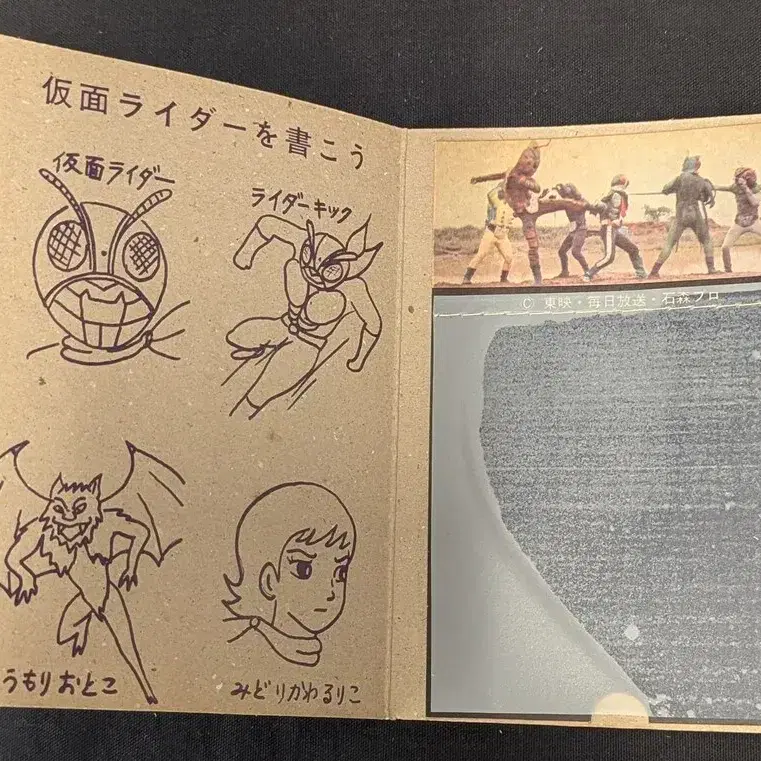 仮面ライダーを書こう
仮面ライダー
ライダーキック
うもりおとこ
みどりかわるりこ
C 東映・毎日放送・石森プロ